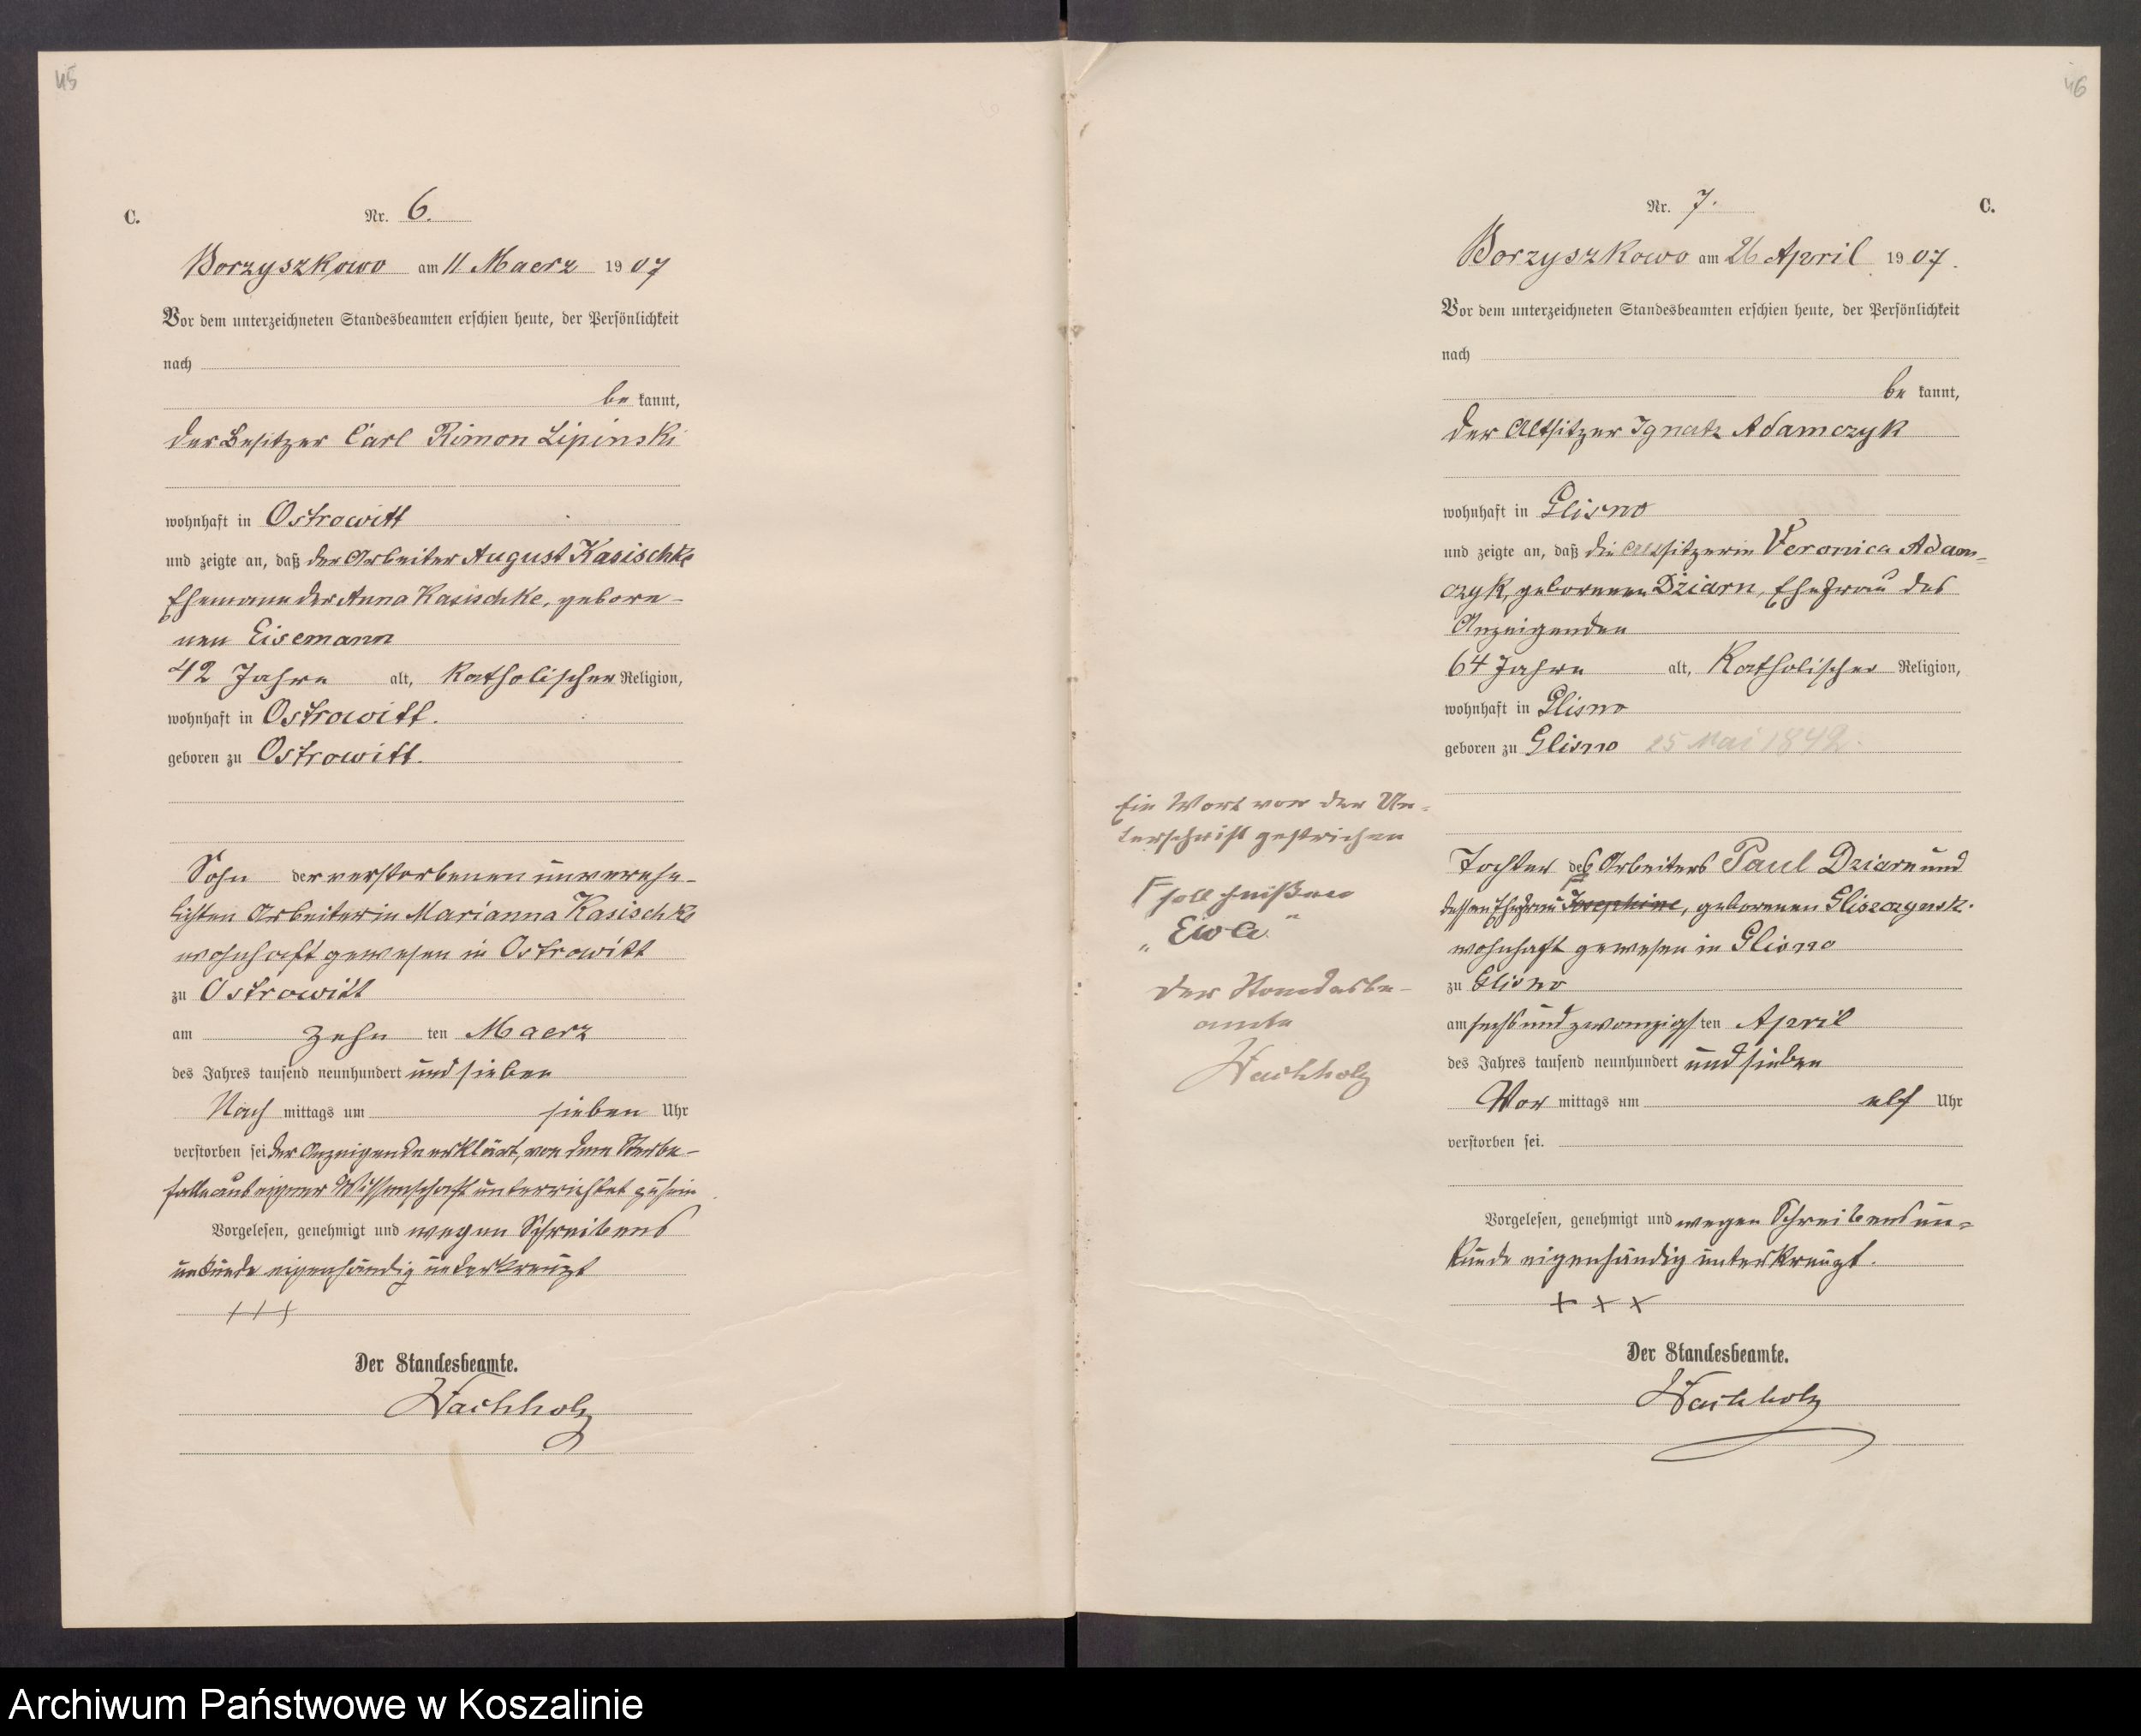 45
C.
Nr. 6.
Borzyszkowo am 11 Maerz 1907
Vor dem unterzeichneten Standesbeamten erschien heute, der Persönlichkeit
nach
be kannt,
der Besitzer Carl Rimon Lipinski
wohnhaft in Ostrowitt
und zeigte an, daß der Arbeiter August Kasischke
Ehemann der Anna Kasischke, gebore-
nen Eisemann
42 Jahre alt, katholischer Religion,
wohnhaft in Ostrowitt.
geboren zu Ostrowitt.
Sohn der verstorbenen unverehe-
lichten Arbeiterin Marianna Kasischke
wohnhaft gewesen in Ostrowitt
zu Ostrowitt
am zehn ten Maerz
des Jahres tausend neunhundert und sieben
Nach mittags um sieben Uhr
verstorben sei der Anzeigende erklärt, von dem Sterbe-
falle aus eigener Wissenschaft unterrichtet zu sein
Vorgelesen, genehmigt und wegen Schreibens
unkunde eigenhändig unterkreuzt
+++
Der Standesbeamte.
Wachholz
46
C.
Nr. 7.
Borzyszkowo am 26 April 1907.
Vor dem unterzeichneten Standesbeamten erschien heute, der Persönlichkeit
nach
be kannt,
der Altsitzer Ignatz Adamczyk
wohnhaft in Glisno
und zeigte an, daß die Altsitzerin Veronica Adam-
czyk, geborenen Dziarn, Ehefrau des
Anzeigenden
64 Jahre alt, Katholischer Religion,
wohnhaft in Glisno
geboren zu Glisno 25 Mai 1842.
Tochter des Arbeiters Paul Dziarn und
dessen Ehefrau Josephine, geborenen Gliszczynsk.
wohnhaft gewesen in Glisno
zu Glisno
am sechsundzwanzigsten April
des Jahres tausend neunhundert und sieben
Vor mittags um elf Uhr
verstorben sei.
Vorgelesen, genehmigt und wegen Schreibens un-
kunde eigenhändig unterkreuzt.
+ + +
Der Standesbeamte.
Wachholz
Ein Wort vor der Un-
terschrift gestrichen
Γ soll heißen
„Ewa"
Der Standesbe-
amte
Wachholz
Archiwum Państwowe w Koszalinie